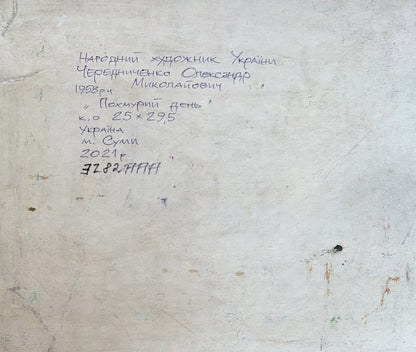 Народний художник України
Чередниченко Олександр
1958р.н Миколайович
„Похмурий день"
к.о 25×29,5
Україна
м. Суми
2021р.